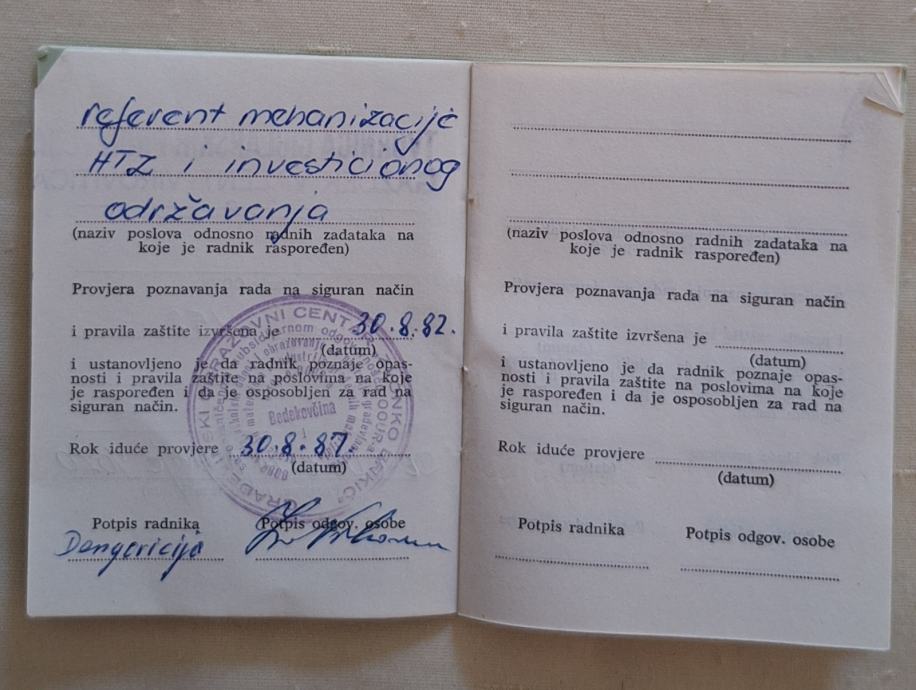 referent mehanizacije
HTZ i investicionog
održavanja
(naziv poslova odnosno radnih zadataka na
koje je radnik raspoređen)
Provjera poznavanja rada na siguran način
i pravila zaštite izvršena je 30.8.82.
(datum)
i ustanovljeno je da radnik poznaje opas-
nosti i pravila zaštite na poslovima na koje
je raspoređen i da je osposobljen za rad na
siguran način.
Rok iduće provjere 30.8.87.
(datum)
Potpis radnika
Potpis odgov. osobe
OBRAZOVNI CENTAR
Bedekovčina
(naziv poslova odnosno radnih zadataka na
koje je radnik raspoređen)
Provjera poznavanja rada na siguran način
i pravila zaštite izvršena je
(datum)
i ustanovljeno je da radnik poznaje opas-
nosti i pravila zaštite na poslovima na koje
je raspoređen i da je osposobljen za rad na
siguran način.
Rok iduće provjere
(datum)
Potpis radnika
Potpis odgov. osobe